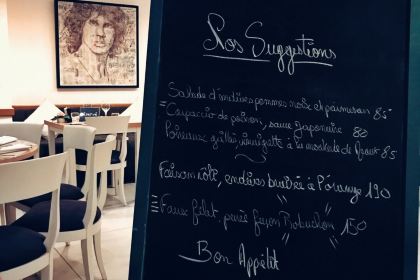 Nos Suggestions
Salade d'endives pommes noix et parmesan 85
Carpaccio de poisson, sauce Japonaise 80
Poireaux grillés vinaigrette à la moutarde de Meaux 85
Faison rôti, endives braisée à l'orange 190
Faux filet, purée façon Robuchon 150
Bon Appétit